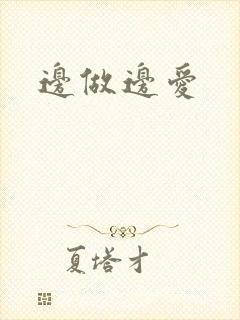 邊做邊愛
夏塔才